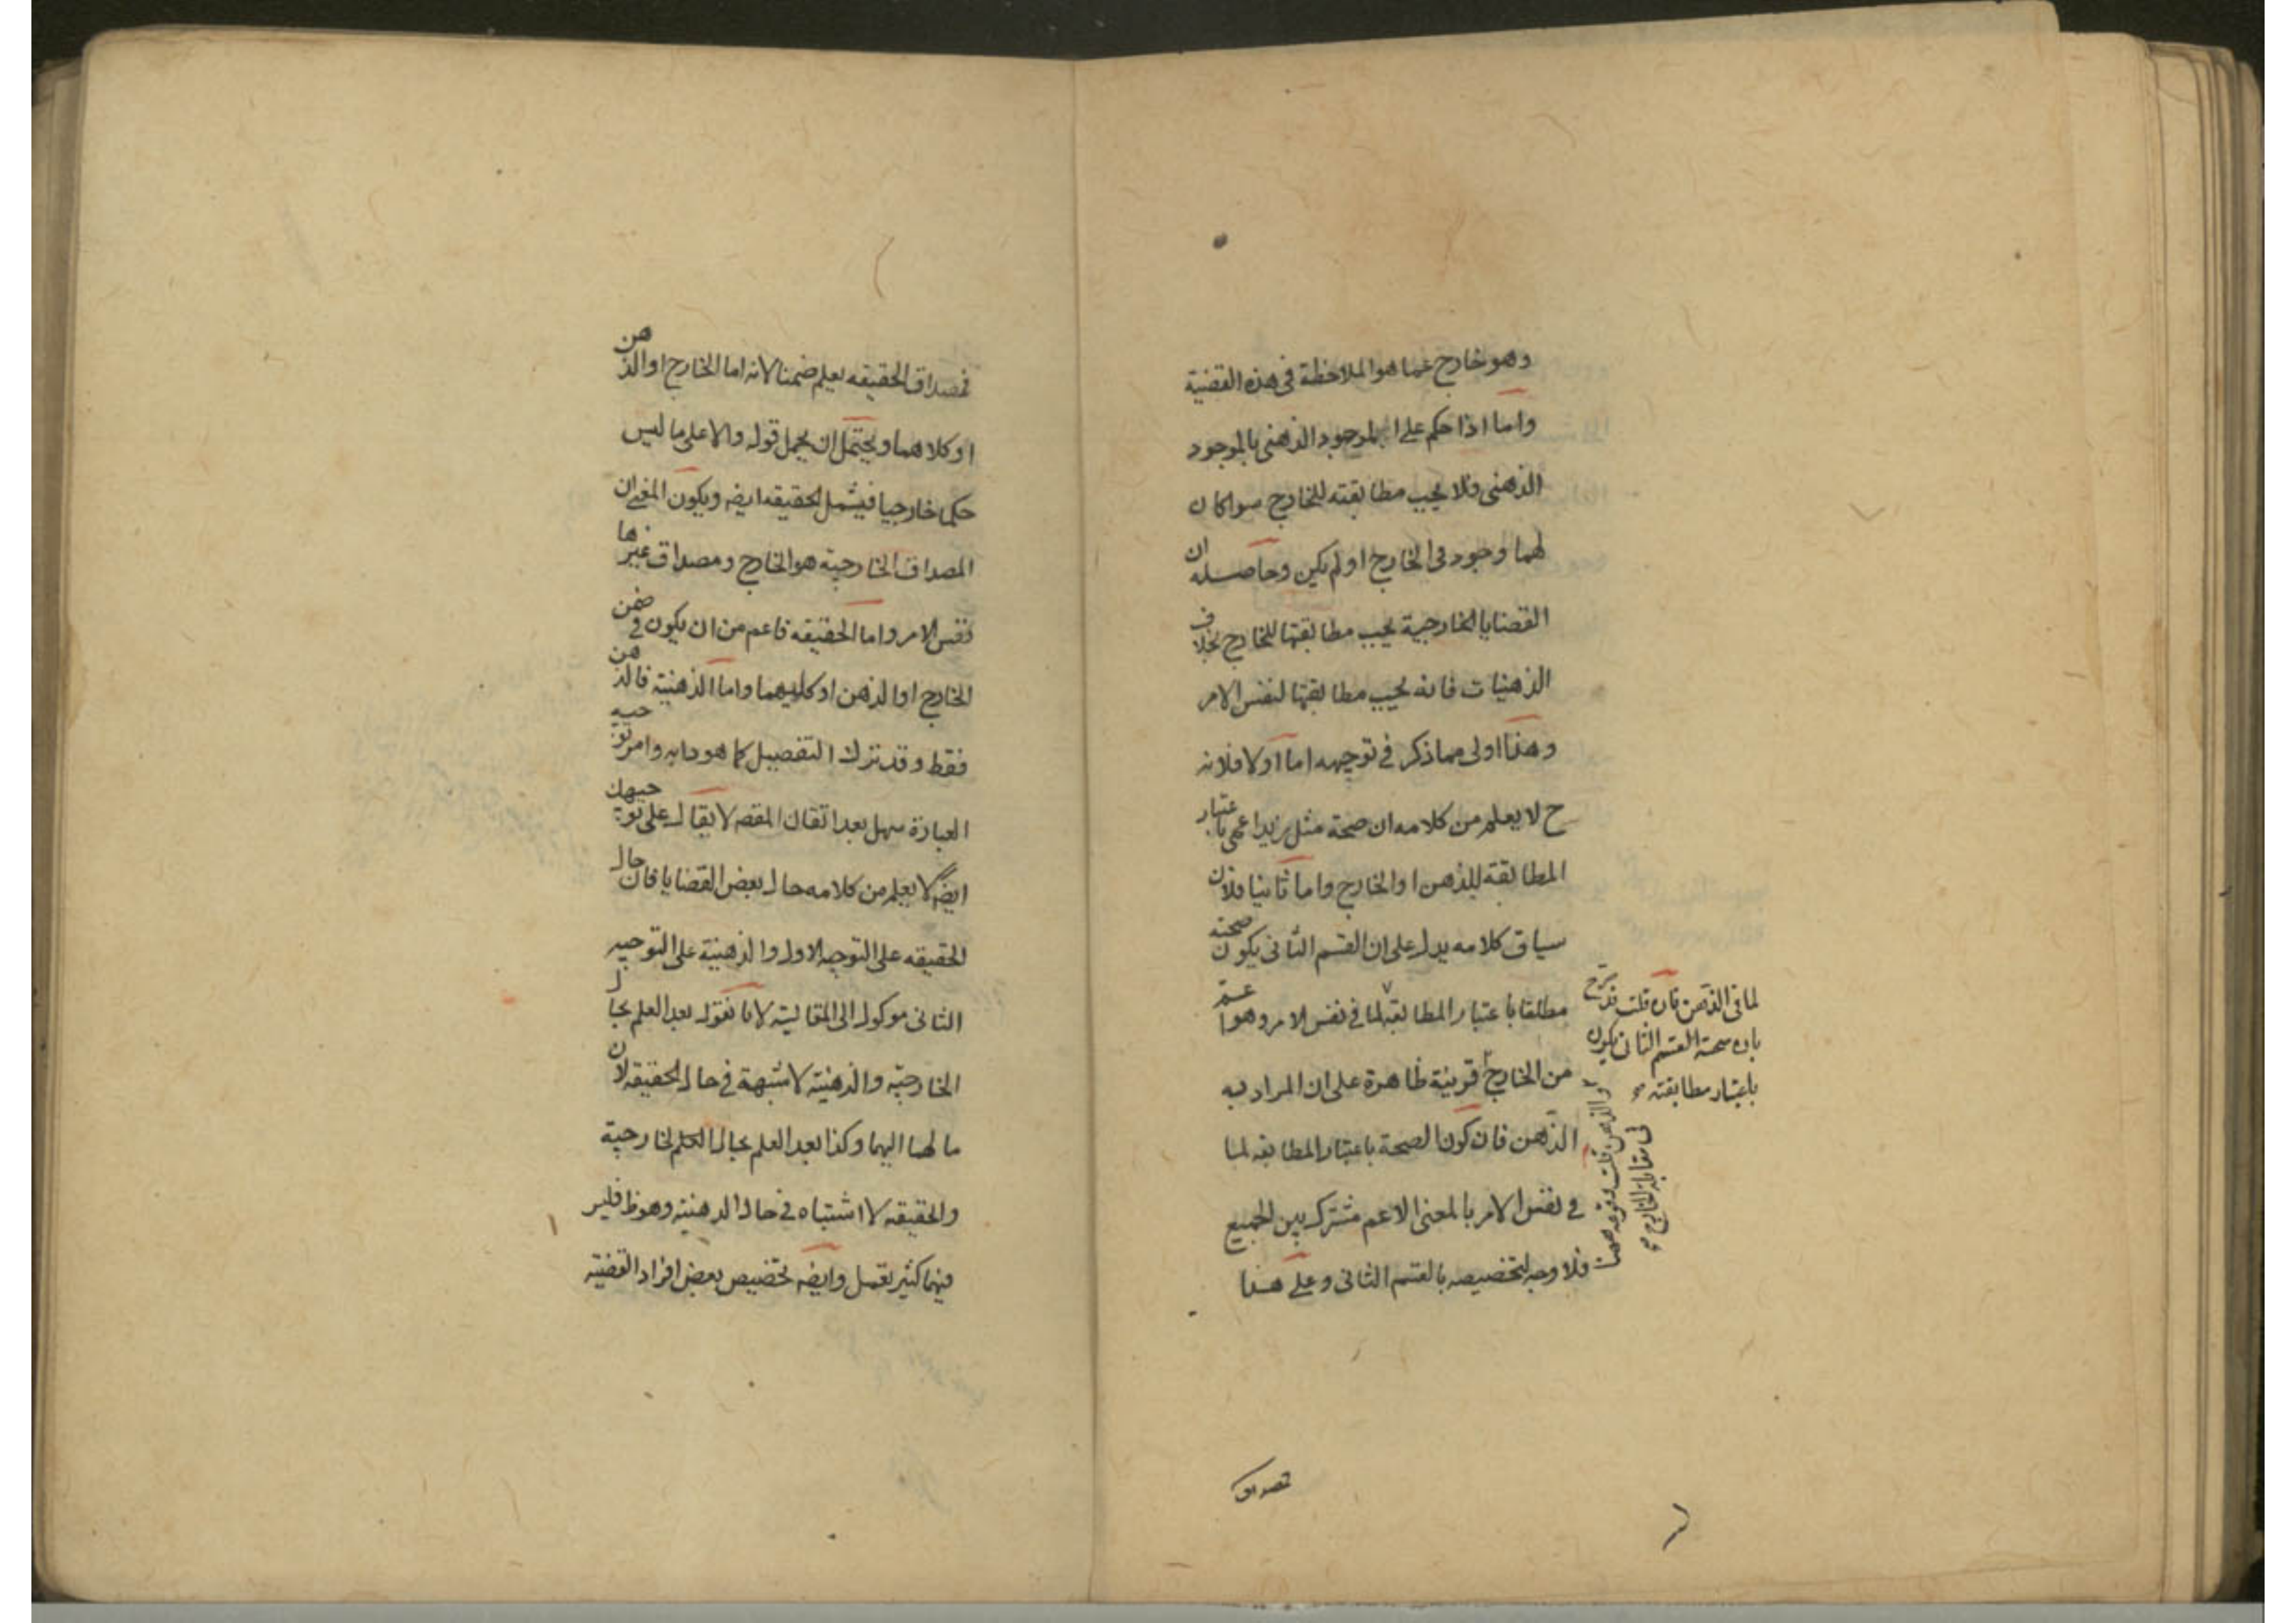 وهو خارج عما هو الملاحظة في هذه القضية
واما اذا حكم على الموجود الذهنى بالموجود
الذهنى فلا يجب مطابقته للخارج سواكان
لهما وجود فى الخارج اولم يكن وحاصله ان
القضايا الخارجية يجب مطابقتها للخارج بخلاف
الذهنيات فانه يجب مطابقتها لنفس الامر
وهذا اولى مما ذكر في توجيهه اما اولا فلانه
ح لا يعلم من كلامه ان صحة مثل زيد اعمى باعتبار
المطابقة للذهن او الخارج واما ثانيا فلان
سياق كلامه يدل على ان القسم الثانى يكون صحته
مطلقا باعتبار المطابقة لما في نفس الامر وهو اعم
من الخارج قرينة ظاهرة على ان المراد به
الذهن فان كون الصحة باعتبار المطابقه لما
في نفس الامر بالمعنى الاعم مشترك بين الجميع
فلا وجه لتخصيصه بالقسم الثانى وعلى هذا
لما فى الذهن فان قلت قد صرح
بان صحة القسم الثانى يكون
باعتبار مطابقته
والذهن قلت وقوعه
فى مقابلة الخارج
فمصداق
فمصداق الحقيقه يعلم ضمنا لانه اما الخارج او الذهن
او كلاهما ويحتمل ان يحمل قوله والا على ما ليس
حكما خارجيا فيشمل الحقيقه ايضه ويكون المعنى ان
المصداق الخارجية هو الخارج ومصداق غيرها
نفس الامر واما الحقيقه فاعم من ان يكون في ضمن
الخارج او الذهن او كليهما واما الذهنية فالذهن
فقط وقد نزك التفصيل كما هو دابه وامر توجيه
العبارة سهل بعد اتقان المقصه لا يقال على توجيهك
ايضه لا يعلم من كلامه حال بعض القضايا فان حال
الحقيقه على التوجيه الاول والذهنية على التوجيه
الثانى موكول الى المقاليته لانا نقول بعد العلم بحال
الخارجيه والذهنيته لا شبهة في حال الحقيقه لان
ما لهما اليهما وكذا بعد العلم بحال الخارجية
والحقيقه لا اشتباه في حال الذهنيته وهو ظ فليس
فيهما كثير تعمل وايضه تخصيص بعض افراد القضيته